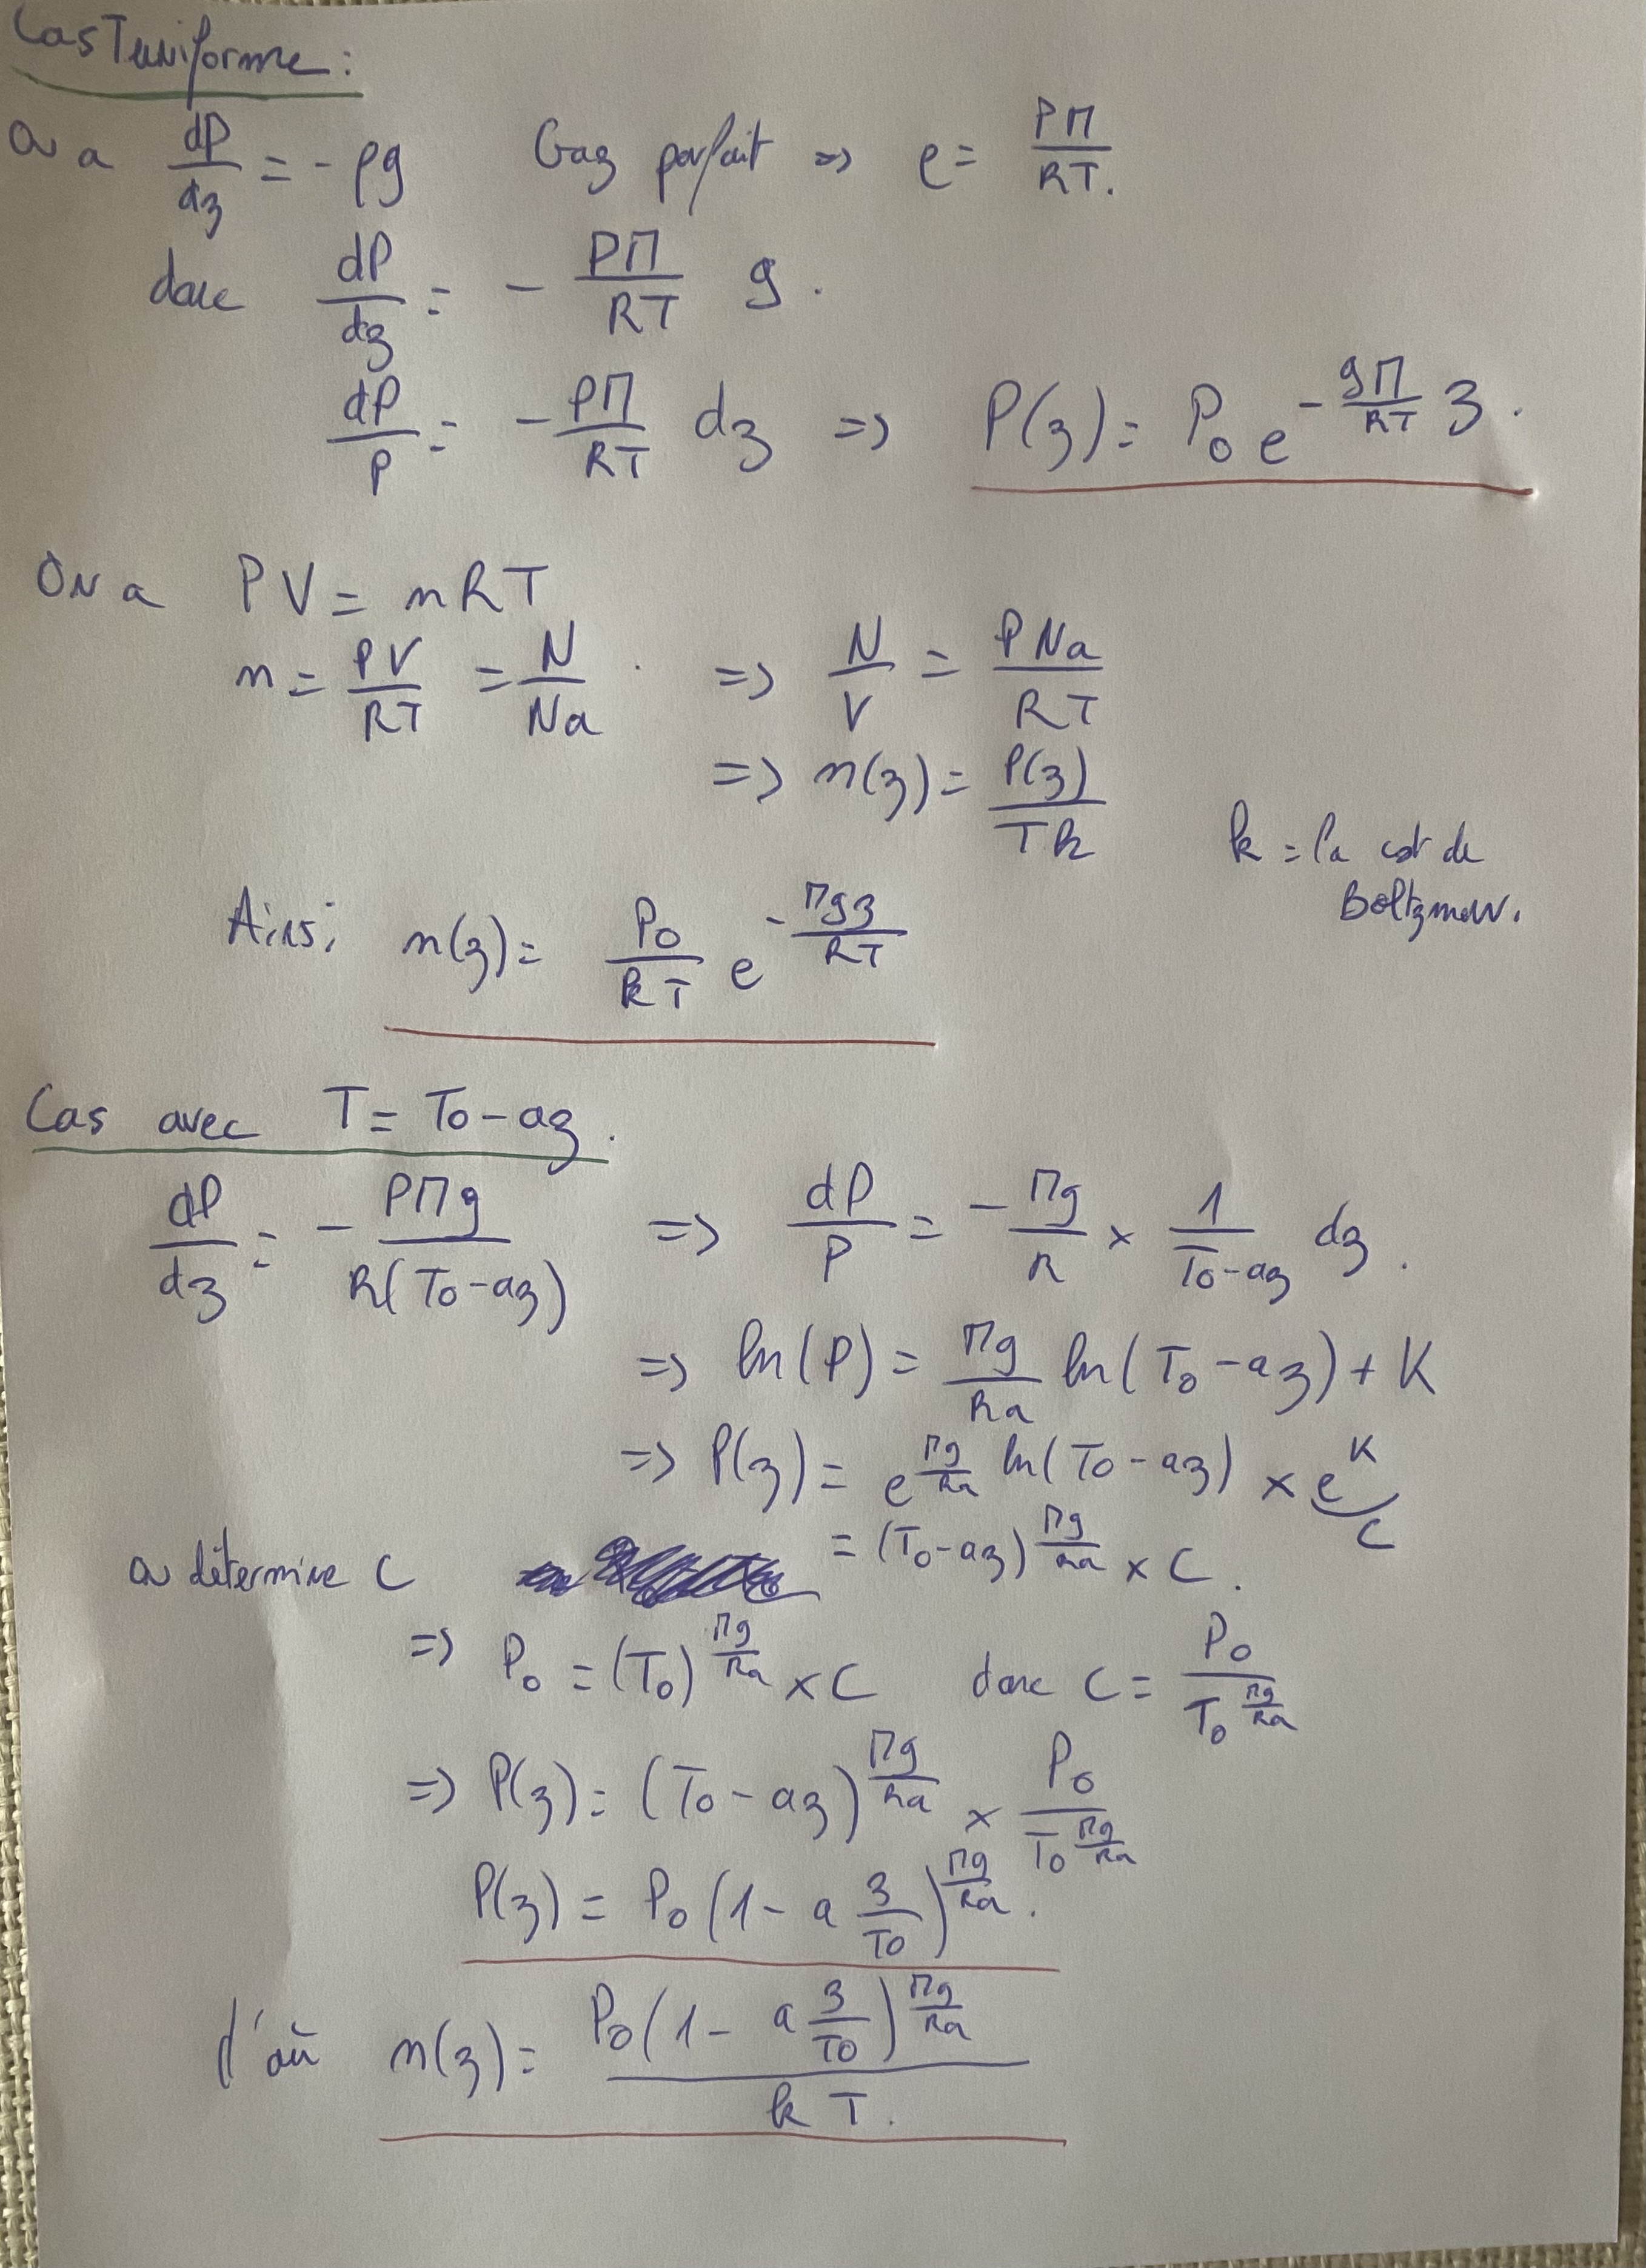 Cas T uniforme :
On a dP/dz = - ρg Gaz parfait => ρ = PM/RT.
donc dP/dz = - PM/RT g.
dP/P = - PM/RT dz => P(z) = P₀ e^(- gM/RT z).
On a PV = nRT
n = PV/RT = N/Na. => N/V = PNa/RT
=> n(z) = P(z)/Tk
k = la cst de
Boltzman.
Ainsi n(z) = P₀/kT e^(- Mgz/RT)
Cas avec T = T₀ - az.
dP/dz = - PMg/R(T₀ - az) => dP/P = - Mg/R × 1/(T₀ - az) dz.
=> ln(P) = Mg/Ra ln(T₀ - az) + K
=> P(z) = e^(Mg/Ra ln(T₀ - az)) × e^K
C
= (T₀ - az)^(Mg/Ra) × C.
on détermine C
=> P₀ = (T₀)^(Mg/Ra) × C donc C = P₀/T₀^(Mg/Ra)
=> P(z) = (T₀ - az)^(Mg/Ra) × P₀/T₀^(Mg/Ra)
P(z) = P₀(1 - a z/T₀)^(Mg/Ra).
d'où n(z) = P₀(1 - a z/T₀)^(Mg/Ra)/kT.